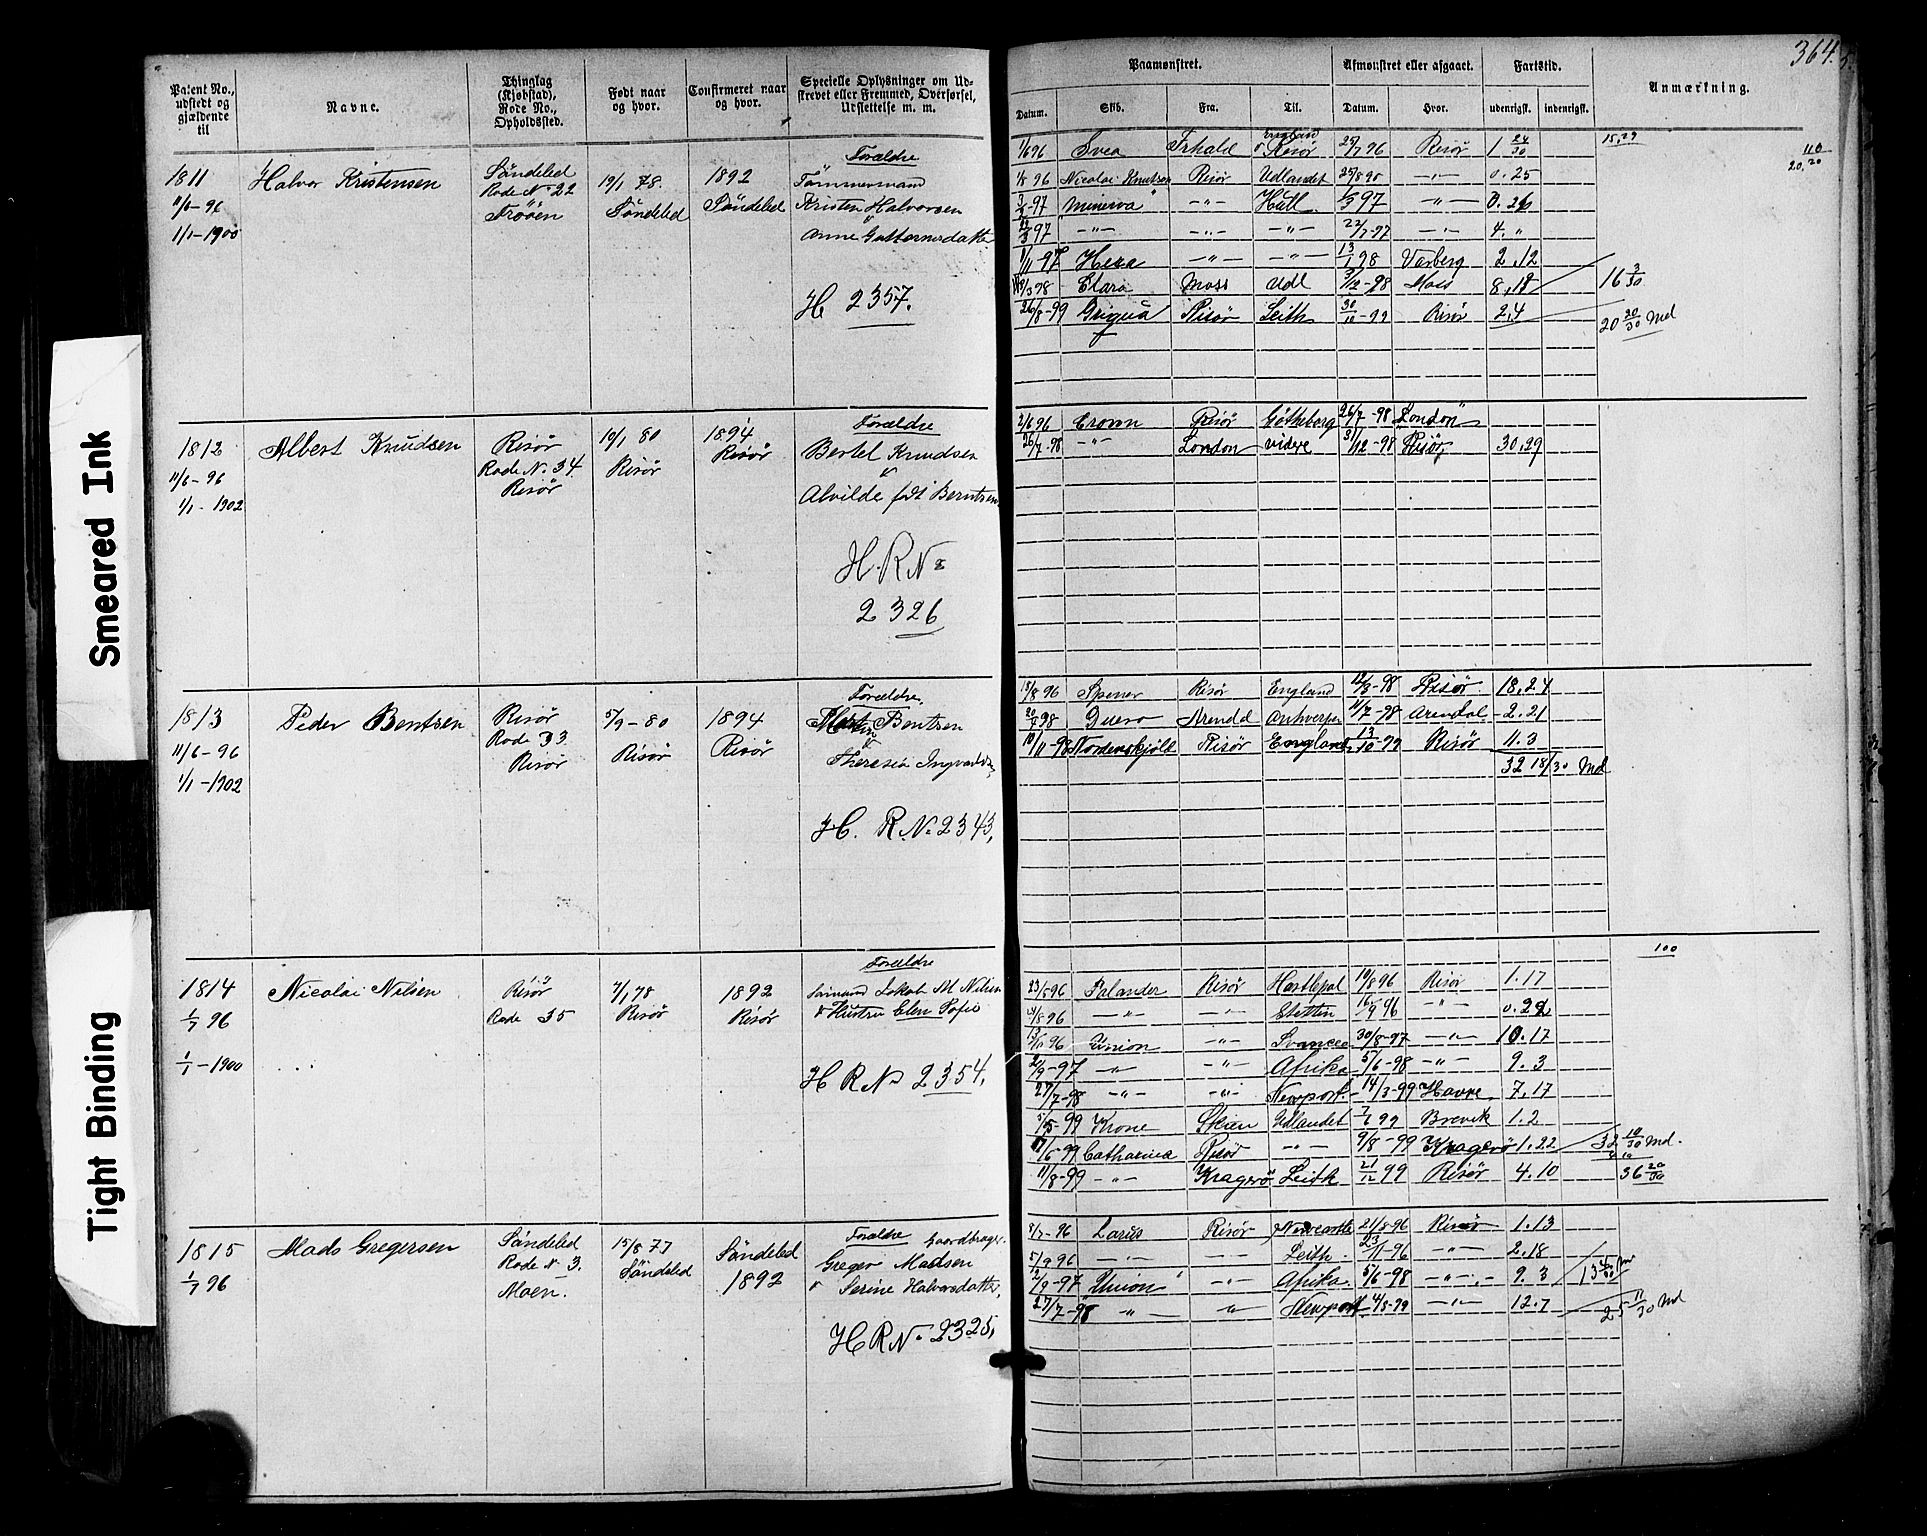 364.
Patent No., udstedt og gjældende til
Navne.
Thinglag (Kjøbstad), Rode No., Opholdssted.
Født naar og hvor.
Confirmeret naar og hvor.
Specielle Oplysninger om Udskrevet eller Fremmed, Overførsel, Udslettelse m. m.
Paamønstret.
Afmønstret eller afgaaet.
Fartstid.
Anmærkning.
Datum.
Skib.
Fra.
Til.
Datum.
Hvor.
udenrigsk.
indenrigsk.
1811
11/6-96
1/1-1900
Halvor Kristensen
Söndeled
Rode No 22
Trööen
19/1 78.
Söndeled
1892
Söndeled
Forældre
Tömmermand
Kristen Halvorsen
Anne Guttormsdatter
H 2357.
1/6 96 Svea England & Risör 25/7 96 Risör 1 24/30 15,29
1/8 96 Nicolai Knutsen Risör Udlandet 25/8 96 -"- 0.25
-97 "Minerva" -"- Hull 1/3 97 -"- 0.26
22/3 97 -"- -"- -"- 22/7-97 -"- 4."
-97 Hera -"- -"- 13/1 98 Varberg 2.12
98 Clara Moss Udl 3/12-98 Moss 8,18 16 3/30
26/8-99 Griqua Risör Leith 30/10-99 Risör 2.4 20 20/30 Md
110
20,20
1812
11/6-96
1/1-1902
Albert Knudsen
Risör
Rode No. 34
Risör
19/1 80
Risör
1894
Risör
Forældre
Bertel Knudsen
&
Alvilde födt Berntsen
H. R No
2326
2/6 96 Crown Risör Götheborg 26/7-98 London
26/7-98 -"- London videre 31/12-98 Risör, 30.29
1813
11/6-96
1/1-1902
Peder Bentsen
Risör
Rode 33
Risör
5/9-80
Risör
1894
Risör
Forældre
Martin Bentsen
&
Theresia
H. R No 2343,
18/8 96 Risör England 12/3-98 Risör 18.24
20/4 98 Arendal Antwerpen 11/7-98 Arendal 2.21
10/11-98 Nordenskjöld Risör England 13/10-99 Risör 11.3
32 18/30 Md
1814
1/7 96
1/1-1900
Nicolai Nilsen
Risör
Rode 35
7/1 78
Risör
1892
Risör
Forældre
Sømand Jakob M Nilsen
& Hustru Elen Sofie
H R No 2354.
100
23/5 96 Palander Risör Hartlepol 19/8 96 Risör 1.17
/8 96 -"- -"- Stettin 16/9 96 -"- 0.22
96 Union -"- Svansea 30/8-97 -"- 10.17
2/9-97 -"- -"- Afrika 5/6-98 -"- 9.3
27/7-98 -"- -"- Newport 14/3-99 Havre 7.17
5/5-99 Krone Skien Udlandet 7/6 99 Brevik 1.2
17/6-99 Catharina Risör -"- 9/8-99 Kragerö 1.22 32 10/30 Md.
11/8-99 -"- Kragerö Leith 21/12 99 Risör 4.10 36 20/30
1815
1/7 96
Mads Gregersen
Söndeled
Rode No 3.
Moen.
15/8 77
Söndeled
Söndeled
1892
Forældre Gaardbruger
Greger Madsen
& Serine Halvorsdatter,
H R No 2325,
8/7-96 Larus Risör Newcastle 21/8-96 Risör 1.13
5/9 96 -"- Leith 23/11-96 -"- 2.18
2/9-97 "Union" -"- Afrika 5/6-98 -"- 9.3
27/7-98 -"- " Newport 4/8-99 -"- 12.7 25 11/30 Md
Smeared Ink
Tight Binding